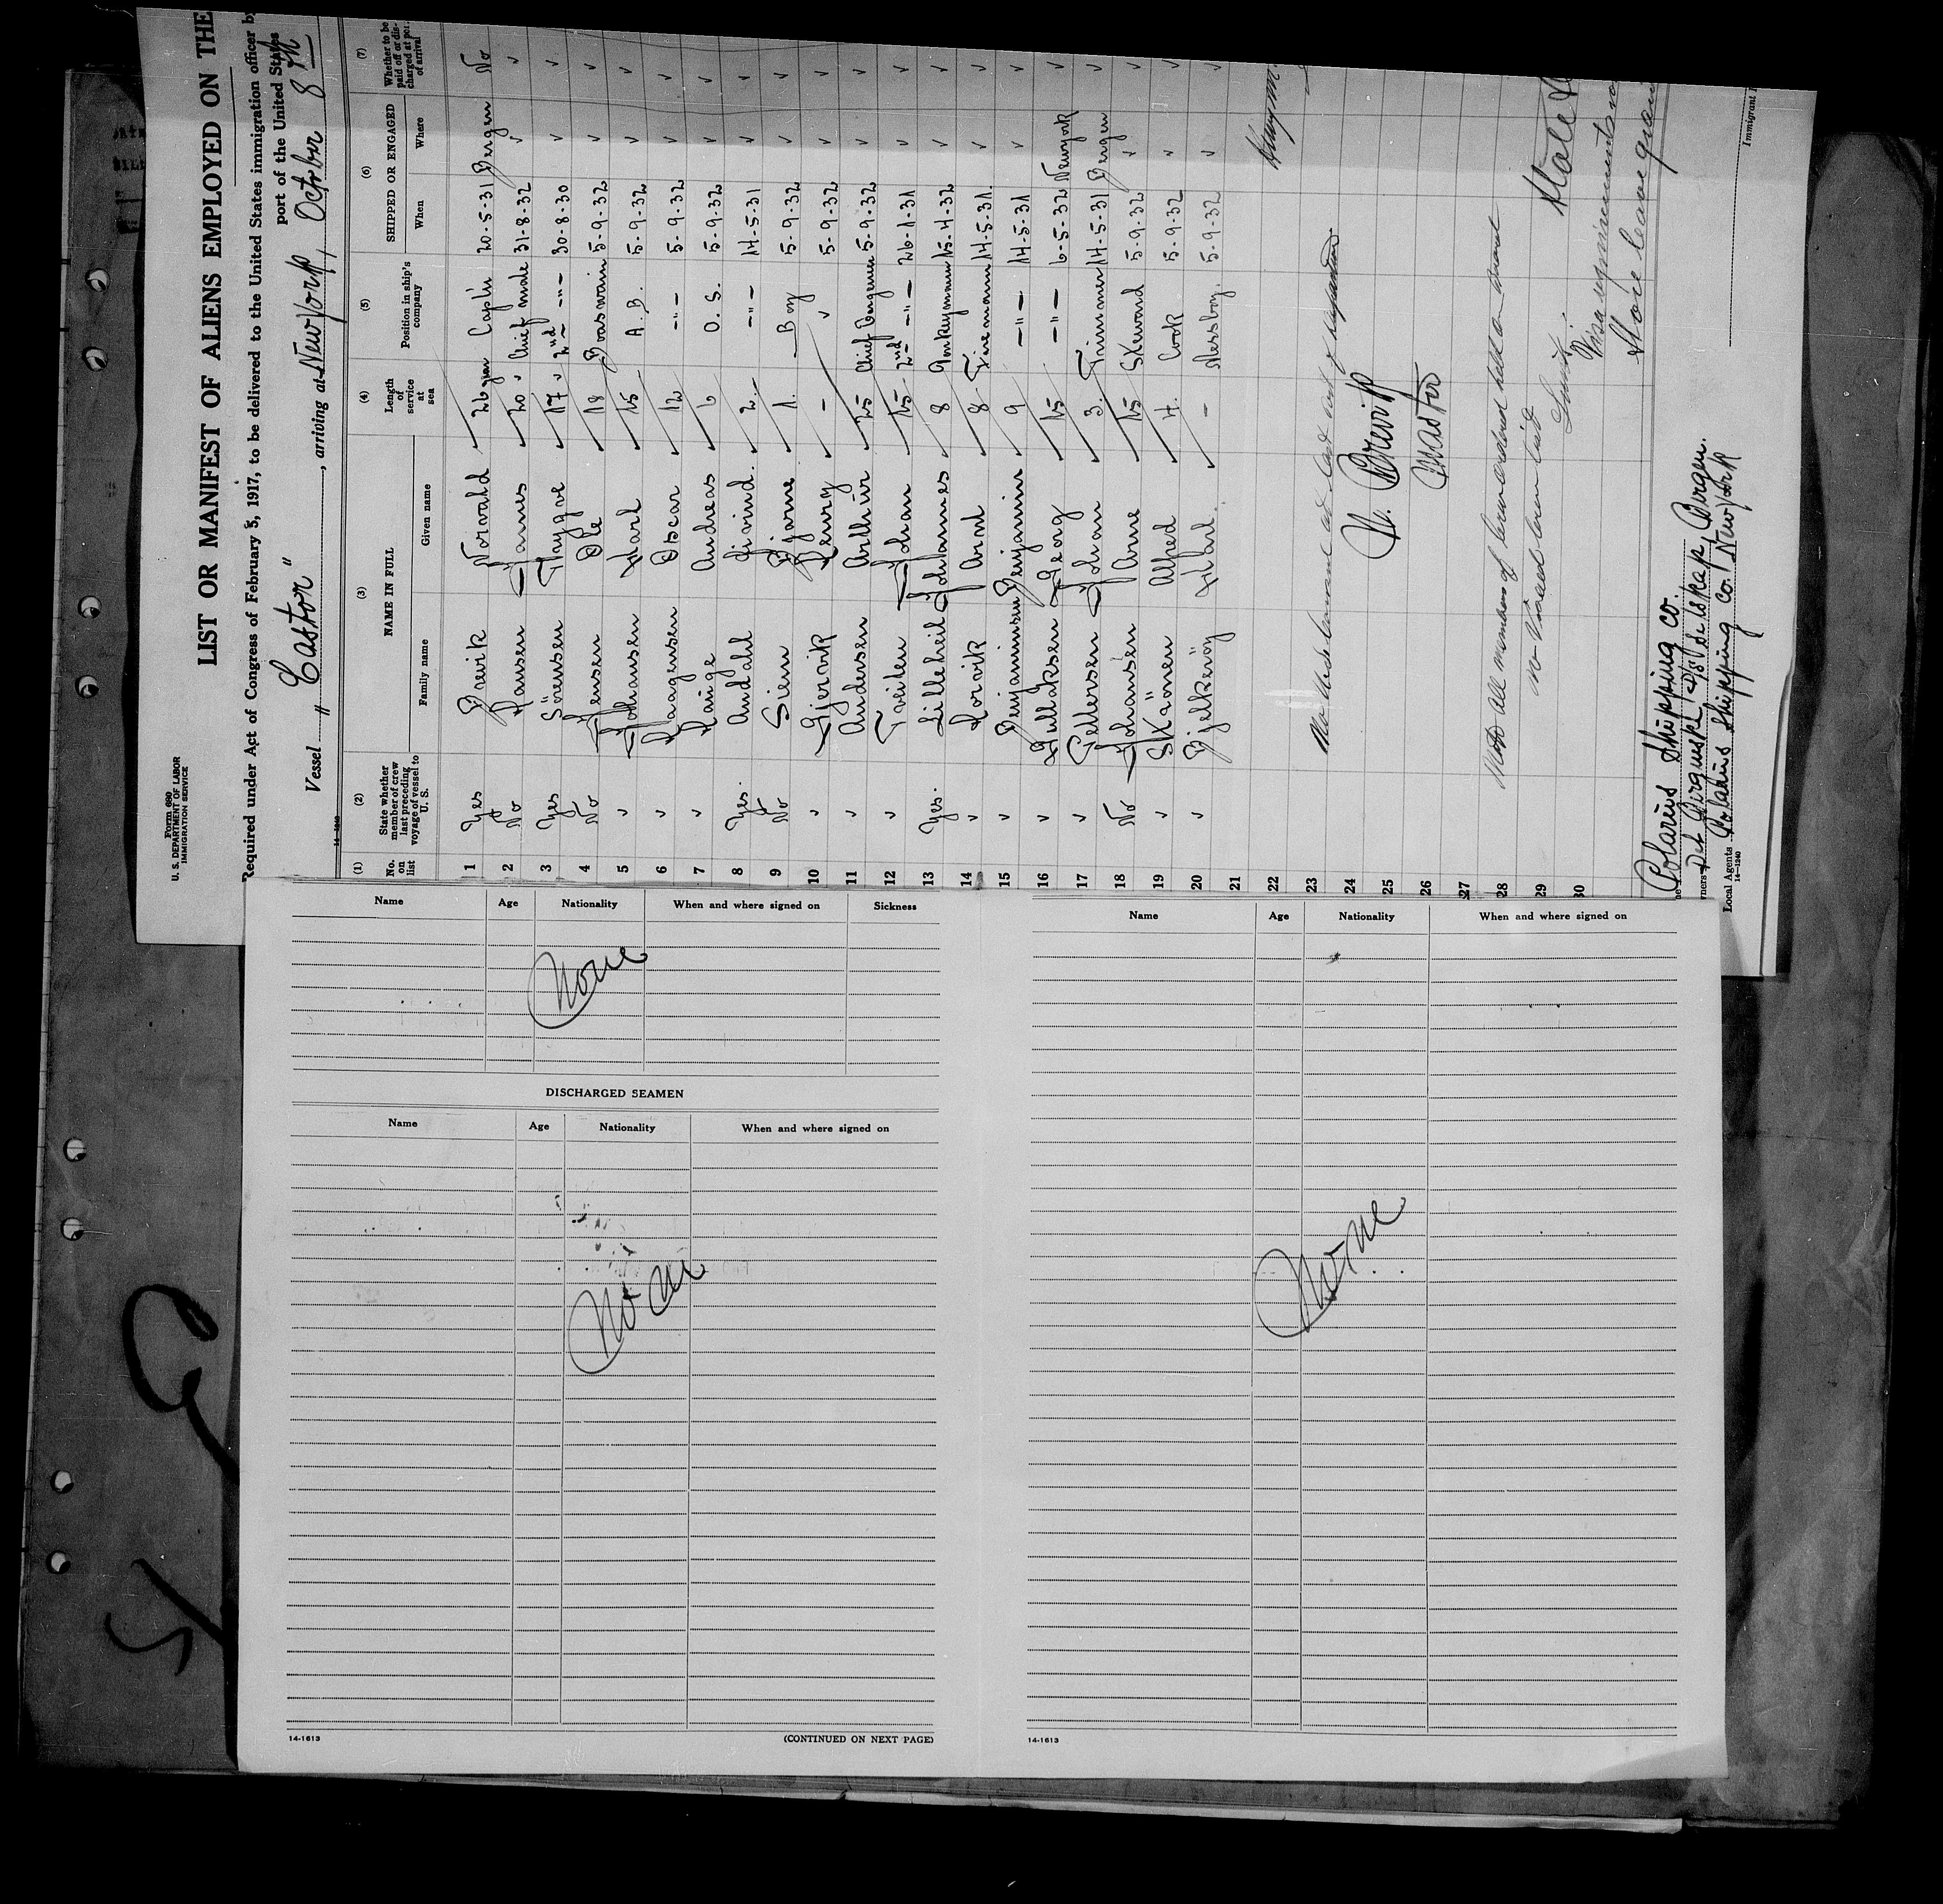 Form 680
U. S. DEPARTMENT OF LABOR
IMMIGRATION SERVICE
LIST OR MANIFEST OF ALIENS EMPLOYED ON THE
Required under Act of Congress of February 5, 1917, to be delivered to the United States immigration officer by
port of the United States
Vessel "Castor", arriving at New York, October 8th
14-1240
(1) (2) (3) (4) (5) (6) (7)
No. on list State whether member of crew last preceding voyage of vessel to U. S. NAME IN FULL Length of service at sea Position in ship's company SHIPPED OR ENGAGED Whether to be paid off or discharged at port of arrival
Family name Given name When Where
1 Yes Brevik Norvald 26 years Capt'n 20-5-31 Bergen No
2 No Hansen Hannes 20 ✓ Chief mate 31-8-32 ✓ ✓
3 Yes Sörensen Trygve 17 ✓ 2nd -"- 30-8-30 ✓ ✓
4 No Jensen Ole 18 Boatswain 5-9-32 ✓ ✓
5 ✓ Johansen Karl 15 A. B. 5-9-32 ✓ ✓
6 ✓ Haagensen Oscar 12 -"- 5-9-32 ✓ ✓
7 ✓ Hauge Andreas 6 O. S. 5-9-32 ✓ ✓
8 Yes. Andahl Eivind. 2 -"- 14-5-31 ✓ ✓
9 No Siem Bjarne 1. Boy 5-9-32 ✓ ✓
10 ✓ Gjervik Henry - ✓ 5-9-32 ✓ ✓
11 ✓ Andersen Arthur 25 Chief Engineer 5-9-32 ✓ ✓
12 ✓ Tveiten Johan 15 2nd -"- 26-1-31 ✓ ✓
13 Yes. Lilleheil Johannes 8 Donkeymann 15-4-32 ✓ ✓
14 ✓ Hovik Arnt 8 Firemann 14-5-31. ✓ ✓
15 ✓ Benjaminsen Benjamin 9 -"- 14-5-31 ✓ ✓
16 ✓ Gullaksen Georg 15 -"- 6-5-32 New york ✓
17 ✓ Pettersen Johan 3. Trimmer 14-5-31 Bergen ✓
18 No Johansen Arne 15 Steward 5-9-32 ✓ ✓
19 ✓ Skånen Alfred 4. Cook 5-9-32 ✓ ✓
20 ✓ Bjelkeröy Karl. - Messboy. 5-9-32 ✓ ✓
21
22
23
24 N. Brevik
25
26 Master
27
28 Note All members of crew ordered held on board
29 no visaed crew list
30
Visa requirements
Shore leave
Polarus Shipping Co.
Owners Det Bergenske D/S Selskap, Bergen.
Local Agents Polarus Shipping Co. New York
14-1240
Immigrant
Name Age Nationality When and where signed on Sickness
None
DISCHARGED SEAMEN
Name Age Nationality When and where signed on
None
14-1613 (CONTINUED ON NEXT PAGE)
Name Age Nationality When and where signed on
None
14-1613